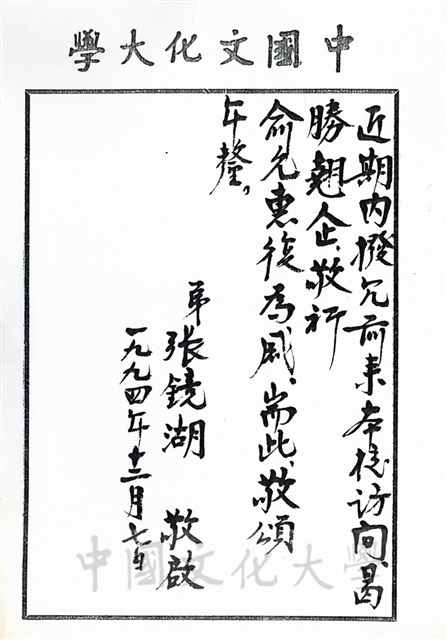 中國文化大學
近期內撥冗前來本校訪問、曷
勝翹企、敬祈
俞允惠復為感、耑此、敬頌
年釐。
弟
張鏡湖 敬啟
一九九四年十二月七日
中國文化大學